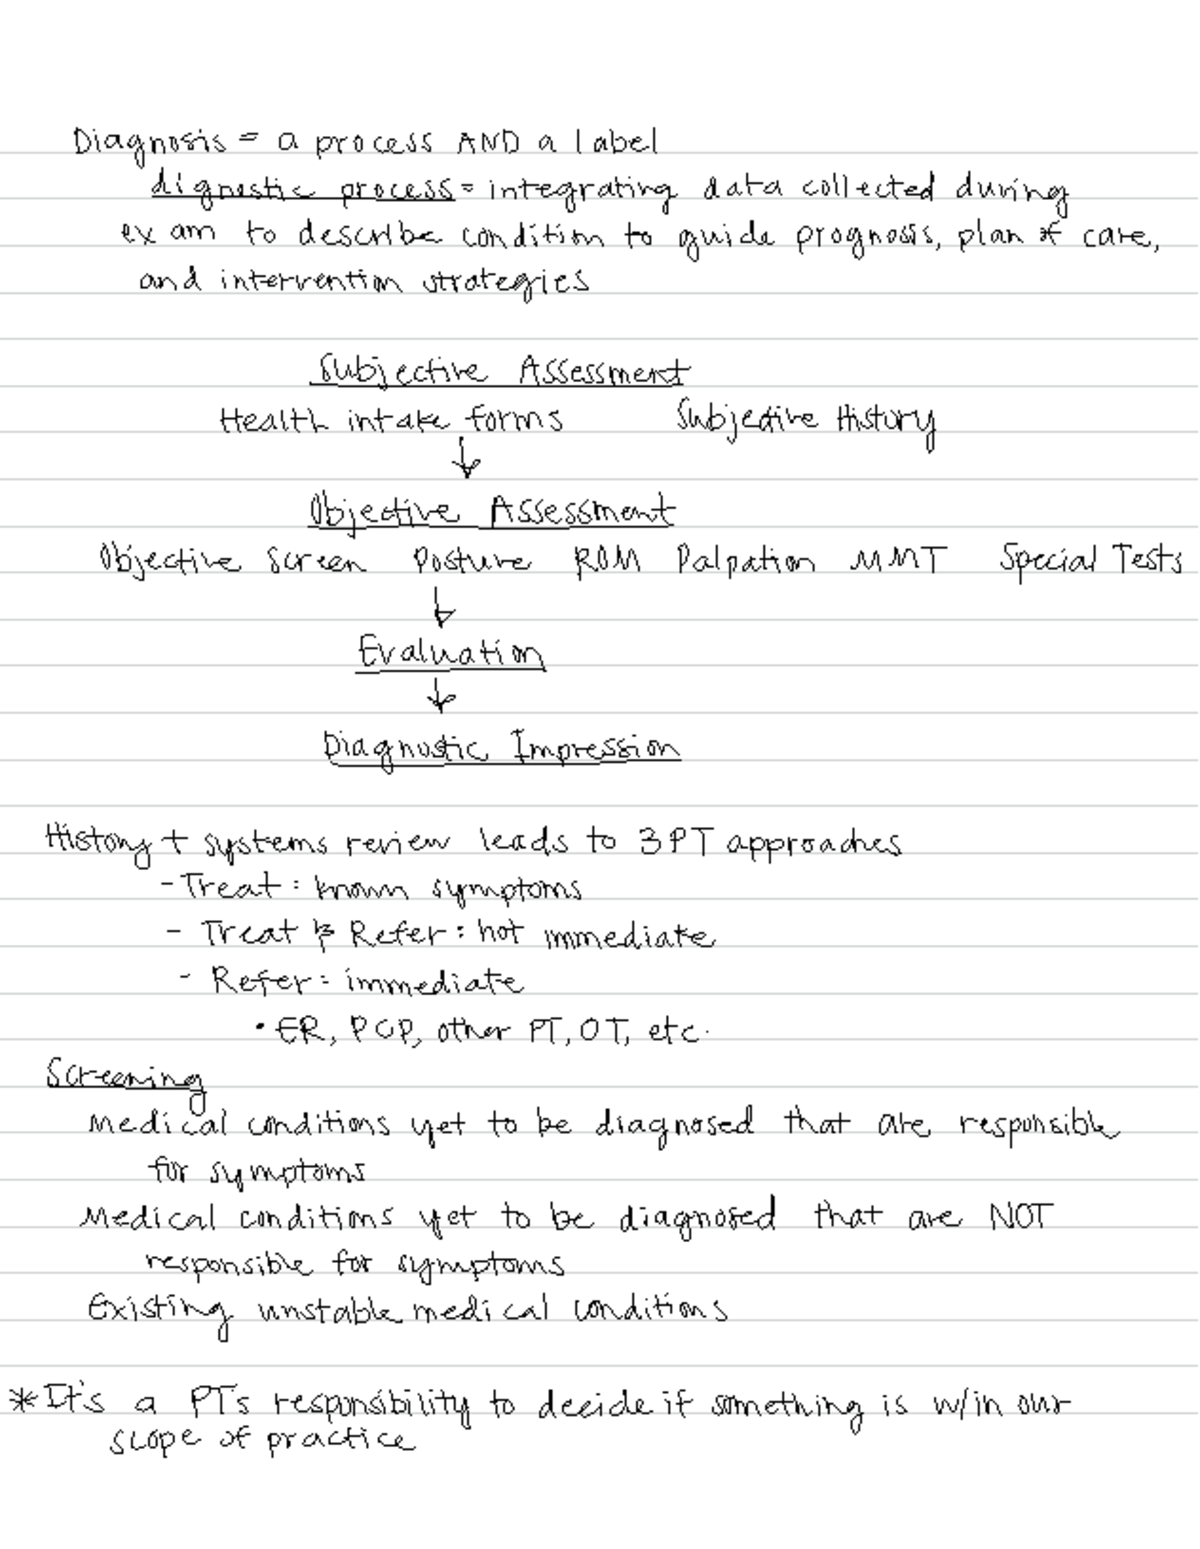 Diagnosis = a process AND a label
dignostic process = integrating data collected during
exam to describe condition to guide prognosis, plan of care,
and intervention strategies
Subjective Assessment
Health intake forms Subjective History
↓
Objective Assessment
Objective Screen Posture ROM Palpation MMT Special Tests
↓
Evaluation
↓
Diagnostic Impression
History + systems review leads to 3 PT approaches
- Treat: known symptoms
- Treat & Refer: not immediate
- Refer: immediate
• ER, PCP, other PT, OT, etc.
Screening
Medical conditions yet to be diagnosed that are responsible
for symptoms
Medical conditions yet to be diagnosed that are NOT
responsible for symptoms
Existing unstable medical conditions
*It's a PTs responsibility to decide if something is w/in our
scope of practice